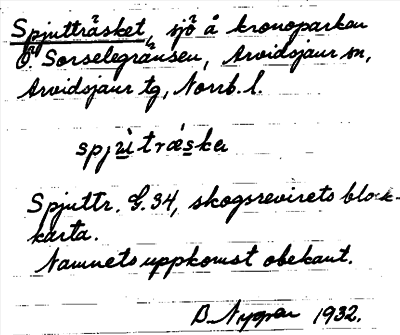 Spjutträsket, sjö å kronoparken
Ö. Sorselegränsen, Arvidsjaur sn,
Arvidsjaur tg, Norrb. l.
spjùtrǽskə
Spjuttr. G.34, skogsrevirets block-
karta.
Namnets uppkomst obekant.
B. Nygren 1932.